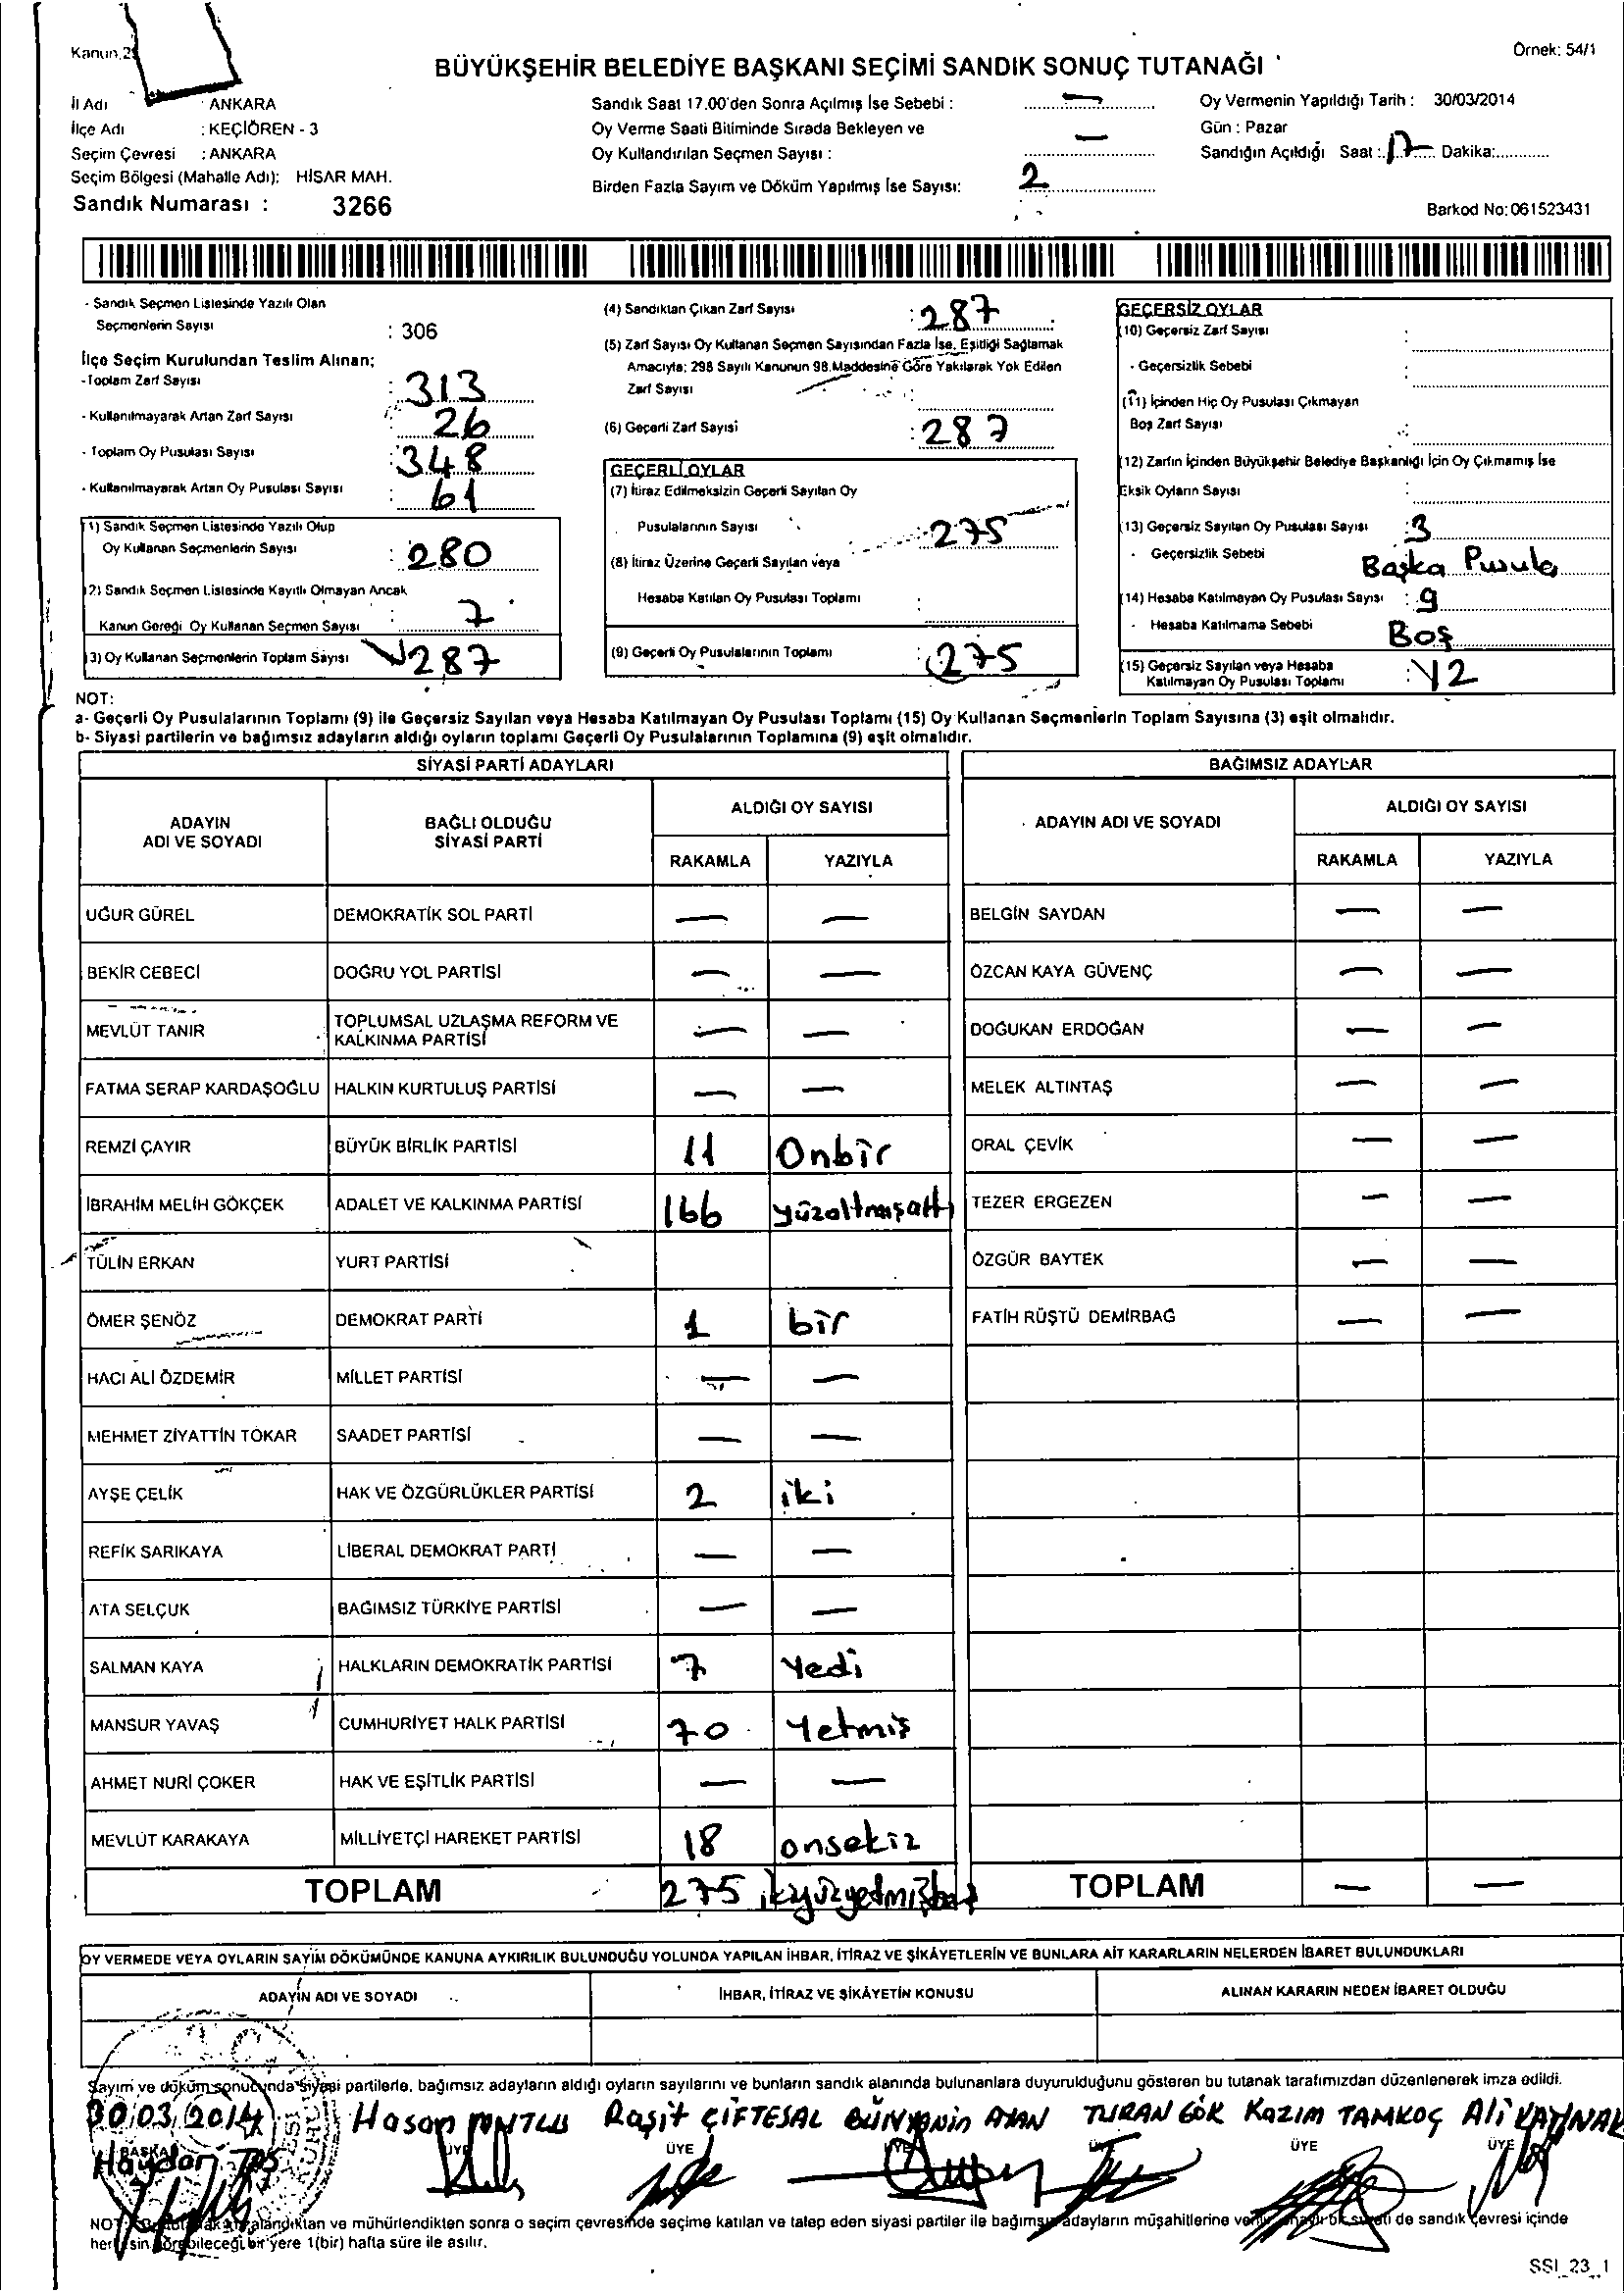 Kanun 2
Örnek: 54/1
BÜYÜKŞEHİR BELEDİYE BAŞKANI SEÇİMİ SANDIK SONUÇ TUTANAĞI
İl Adı : ANKARA
İlçe Adı : KEÇİÖREN - 3
Seçim Çevresi : ANKARA
Seçim Bölgesi (Mahalle Adı): HİSAR MAH.
Sandık Numarası : 3266
Sandık Saat 17.00'den Sonra Açılmış İse Sebebi : —
Oy Verme Saati Bitiminde Sırada Bekleyen ve
Oy Kullandırılan Seçmen Sayısı : —
Birden Fazla Sayım ve Döküm Yapılmış İse Sayısı: 2
Oy Vermenin Yapıldığı Tarih : 30/03/2014
Gün : Pazar
Sandığın Açıldığı Saat : 17 Dakika:
Barkod No: 061523431
- Sandık Seçmen Listesinde Yazılı Olan
Seçmenlerin Sayısı : 306
İlçe Seçim Kurulundan Teslim Alınan;
- Toplam Zarf Sayısı : 313
- Kullanılmayarak Artan Zarf Sayısı : 26
- Toplam Oy Pusulası Sayısı : 348
- Kullanılmayarak Artan Oy Pusulası Sayısı : 61
1) Sandık Seçmen Listesinde Yazılı Olup
Oy Kullanan Seçmenlerin Sayısı : 280
2) Sandık Seçmen Listesinde Kayıtlı Olmayan Ancak
Kanun Gereği Oy Kullanan Seçmen Sayısı : 7
3) Oy Kullanan Seçmenlerin Toplam Sayısı 287
(4) Sandıktan Çıkan Zarf Sayısı : 287
(5) Zarf Sayısı Oy Kullanan Seçmen Sayısından Fazla İse, Eşitliği Sağlamak
Amacıyla; 298 Sayılı Kanunun 98.Maddesine Göre Yakılarak Yok Edilen
Zarf Sayısı :
(6) Geçerli Zarf Sayısı : 287
GEÇERLİ OYLAR
(7) İtiraz Edilmeksizin Geçerli Sayılan Oy
Pusulalarının Sayısı : 275
(8) İtiraz Üzerine Geçerli Sayılan veya
Hesaba Katılan Oy Pusulası Toplamı :
(9) Geçerli Oy Pusulalarının Toplamı : 275
GEÇERSİZ OYLAR
(10) Geçersiz Zarf Sayısı :
- Geçersizlik Sebebi :
(11) İçinden Hiç Oy Pusulası Çıkmayan
Boş Zarf Sayısı :
(12) Zarfın İçinden Büyükşehir Belediye Başkanlığı İçin Oy Çıkmamış İse
Eksik Oyların Sayısı :
(13) Geçersiz Sayılan Oy Pusulası Sayısı : 3
- Geçersizlik Sebebi Başka Pusula
(14) Hesaba Katılmayan Oy Pusulası Sayısı : 9
- Hesaba Katılmama Sebebi Boş
(15) Geçersiz Sayılan veya Hesaba
Katılmayan Oy Pusulası Toplamı : 12
NOT:
a- Geçerli Oy Pusulalarının Toplamı (9) ile Geçersiz Sayılan veya Hesaba Katılmayan Oy Pusulası Toplamı (15) Oy Kullanan Seçmenlerin Toplam Sayısına (3) eşit olmalıdır.
b- Siyasi partilerin ve bağımsız adayların aldığı oyların toplamı Geçerli Oy Pusulalarının Toplamına (9) eşit olmalıdır.
SİYASİ PARTİ ADAYLARI
ADAYIN ADI VE SOYADI BAĞLI OLDUĞU SİYASİ PARTİ ALDIĞI OY SAYISI
RAKAMLA YAZIYLA
UĞUR GÜREL DEMOKRATİK SOL PARTİ — —
BEKİR CEBECİ DOĞRU YOL PARTİSİ — —
MEVLÜT TANIR TOPLUMSAL UZLAŞMA REFORM VE KALKINMA PARTİSİ — —
FATMA SERAP KARDAŞOĞLU HALKIN KURTULUŞ PARTİSİ — —
REMZİ ÇAYIR BÜYÜK BİRLİK PARTİSİ 11 Onbir
İBRAHİM MELİH GÖKÇEK ADALET VE KALKINMA PARTİSİ 166 yüzaltmışaltı
TÜLİN ERKAN YURT PARTİSİ
ÖMER ŞENÖZ DEMOKRAT PARTİ 1 bir
HACI ALİ ÖZDEMİR MİLLET PARTİSİ — —
MEHMET ZİYATTİN TOKAR SAADET PARTİSİ — —
AYŞE ÇELİK HAK VE ÖZGÜRLÜKLER PARTİSİ 2 iki
REFİK SARIKAYA LİBERAL DEMOKRAT PARTİ — —
ATA SELÇUK BAĞIMSIZ TÜRKİYE PARTİSİ — —
SALMAN KAYA HALKLARIN DEMOKRATİK PARTİSİ 7 Yedi
MANSUR YAVAŞ CUMHURİYET HALK PARTİSİ 70 Yetmiş
AHMET NURİ ÇOKER HAK VE EŞİTLİK PARTİSİ — —
MEVLÜT KARAKAYA MİLLİYETÇİ HAREKET PARTİSİ 18 onsekiz
TOPLAM 275 ikiyüzyetmişbeş
BAĞIMSIZ ADAYLAR
ADAYIN ADI VE SOYADI ALDIĞI OY SAYISI
RAKAMLA YAZIYLA
BELGİN SAYDAN — —
ÖZCAN KAYA GÜVENÇ — —
DOĞUKAN ERDOĞAN — —
MELEK ALTINTAŞ — —
ORAL ÇEVİK — —
TEZER ERGEZEN — —
ÖZGÜR BAYTEK — —
FATİH RÜŞTÜ DEMİRBAĞ — —
TOPLAM — —
OY VERMEDE VEYA OYLARIN SAYIM DÖKÜMÜNDE KANUNA AYKIRILIK BULUNDUĞU YOLUNDA YAPILAN İHBAR, İTİRAZ VE ŞİKÂYETLERİN VE BUNLARA AİT KARARLARIN NELERDEN İBARET BULUNDUKLARI
ADAYIN ADI VE SOYADI İHBAR, İTİRAZ VE ŞİKÂYETİN KONUSU ALINAN KARARIN NEDEN İBARET OLDUĞU
Sayım ve döküm sonucunda siyasi partilerle, bağımsız adayların aldığı oyların sayılarını ve bunların sandık alanında bulunanlara duyurulduğunu gösteren bu tutanak tarafımızdan düzenlenerek imza edildi.
30.03.2014 Hasan MUTLU Raşit ÇİFTESAL BÜNYAMİN AYAN TURAN GÖK Kazım TAMKOÇ Ali KAYNAK
BAŞKAN ÜYE ÜYE ÜYE ÜYE ÜYE ÜYE
Haydar TAŞ
ve mühürlendikten sonra o seçim çevresinde seçime katılan ve talep eden siyasi partiler ile bağımsız adayların müşahitlerine de sandık çevresi içinde
görebileceği bir yere 1(bir) hafta süre ile asılır.
SSI_23_1